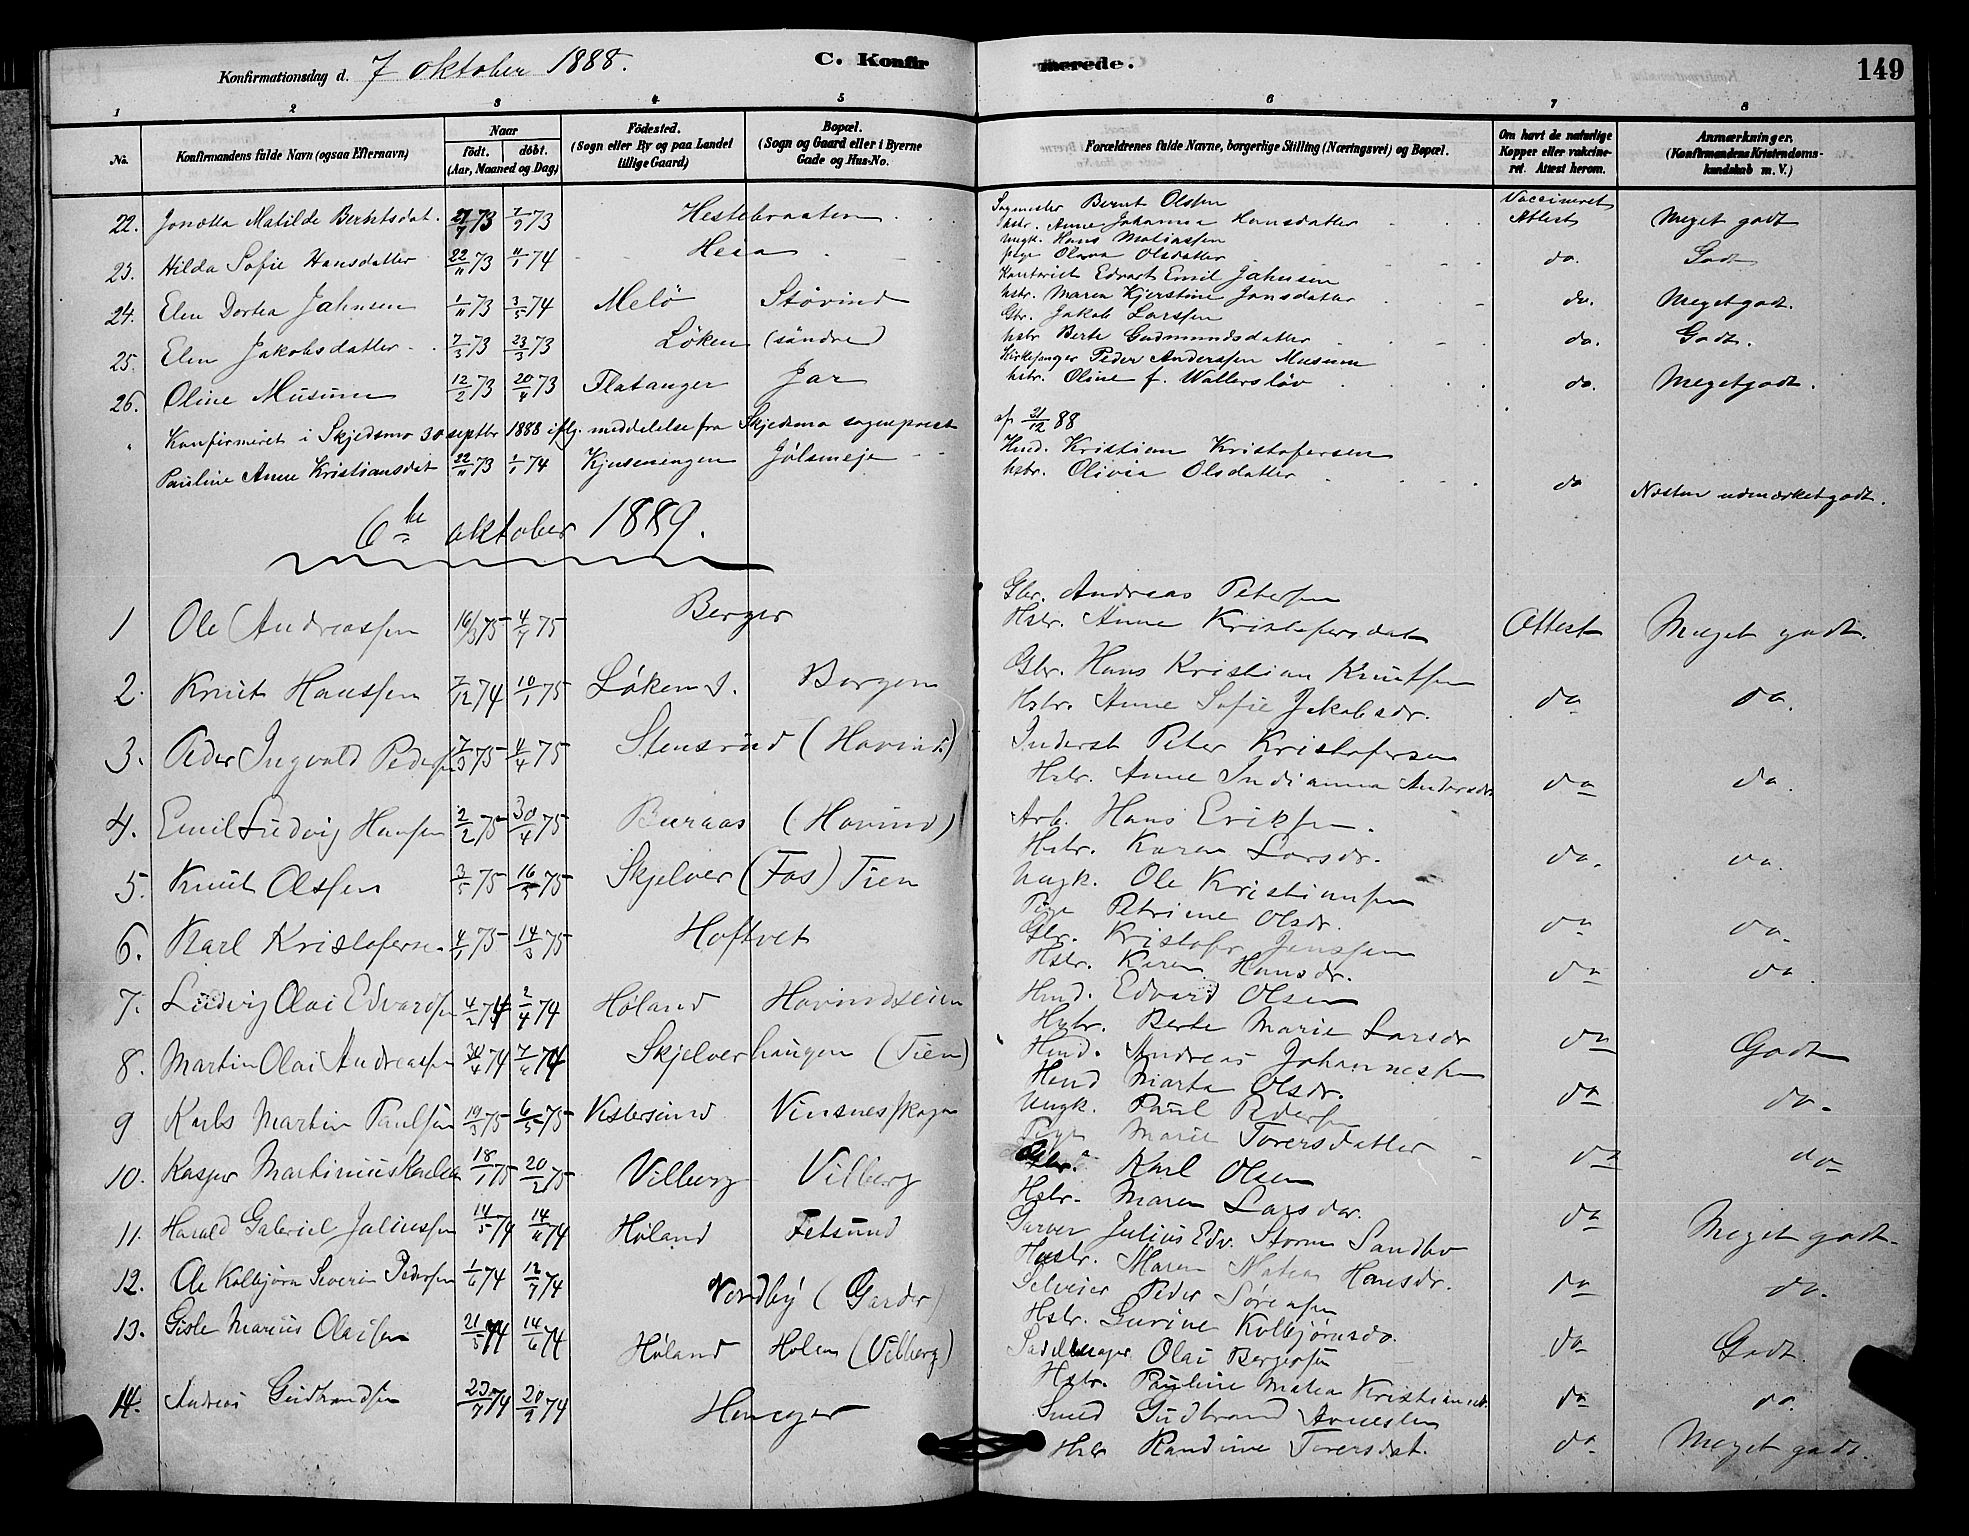 Konfirmationsdag d. 7 oktober 1888. C. Konfirmerede. 149
1 2 3 4 5 6 7 8
No. Konfirmandens fulde Navn (ogsaa Efternavn) Naar födt. döbt. (Aar, Maaned og Dag) Födested. (Sogn eller By og paa Landet tillige Gaard) Bopæl. (Sogn og Gaard eller i Byerne Gade og Hus-No. Forældrenes fulde Navne, borgerlige Stilling (Næringsvei) og Bopæl. Om havt de naturlige Kopper eller vakcineret. Attest herom. Anmærkninger. (Konfirmandens Kristendomskundskab m. V.)
22. Jonetta Matilde Berntsdat. 27/7 73 7/9 73 Hestebraaten Sagmester Bernt Olssen Vaccineret
hstr. Anne Johanna Hansdatter Attest Meget godt
23. Hilda Sofie Hansdatter 22/11 73 4/1 74 Heia Ungk. Hans Matiassen
pige Olava Olsdatter do. Godt
24. Elen Dortea Jahnsen 1/11 73 3/5 74 Melö Stövind Edvart Emil Jahnsen
hstr. Maren Kjerstine Jonsdatter do. Meget godt.
25. Elen Jakobsdatter 7/3 73 23/3 73 Löken (söndre) Gbr. Jakob Larssen
hstr Berte Gudmundsdatter do. Godt.
26. Oline Musum 12/2 73 20/4 73 Flatanger Jar Kirkesanger Peder Anderssen Musum
hstr. Oline f. Wallerslöv do. Meget godt.
" Konfirmeret i Skjedsmo 30 septbr 1888 iflg. meddelelse fra Skjedsmo sogneprest af 31/12 88
Pauline Anne Kristiansdat 22/11 73 1/1 74 Jölsmeje Hmd. Kristian Kristofersen
hstr. Olivia Olsdatter do Næsten udmærket godt.
6te oktober 1889.
1 Ole Andreassen 16/3 75 4/7 75 Berger Gbr. Andreas Petersen
Hstr. Anne Kristofersdat Attest Meget godt.
2. Knut Hanssen 7/12 74 10/1 75 Löken s. Borgen Gbr. Hans Kristian Knutsen
Hstr. Anne Sofie Jakobsdr. do do.
3. Peder Ingvald Peders 7/3 75 4/4 75 Stensrud (Hovind) Inderst Peter Kristofersen
Hstr. Anne Indianna Andersdr do do.
4. Emil Ludvig Hansen 2/2 75 30/4 75 Buraas (Hovind) Arb. Hans Eriksen.
Hstr. Karen Larsdr. do. do.
5. Knut Olssen 3/5 75 16/5 75 Skjelver (Fos) Tien Ungk. Ole Kristiansen
Pige Petrine Olsdr. do do.
6. Karl Kristofersen 4/1 75 14/3 75 Hoftvet Gbr. Kristofer Jenssen
Hstr. Karen Hansdr. do do.
7. Ludvig Olai Edvardsen 4/2 74 2/4 74 Höland Hovindseien Hmd. Edvard Olsen
Hstr. Berte Marie Larsdr do Godt
8. Martin Olai Andreassen 30/4 74 7/6 74 Skjelverhaugen (Tien) Hmd. Andreas Johannessen
Hmd Marta Olsdr. do do.
9 Karls Martin Paulsen 19/3 75 6/5 75 Vestersund Vinsnesskogen Ungk. Paul Pedersen
Pige Marie Toversdatter do do
10. Kasper Martinius Karlsen 18/1 75 20/2 75 Vilberg Vilberg Gbr. Karl Olsen
Hstr. Maren Larsdr. do Meget godt.
11. Harald Gabriel Juliussen 14/5 74 14/11 74 Höland Fetsund Garver Julius Edv. Storm Sandbo
Hustr. Maren Matea Hansdr. do do.
12. Ole Kolbjörn Severin Pedersen 1/6 74 12/7 74 Nordby (Garder) Selveier Peder Sörensen
Hstr. Gurine Kolbjörnsdr. do Godt.
13. Gisle Marius Olaisen 21/5 74 14/6 74 Höland Holen (Vilberg) Sadelmager Olai Bergersen
Hstr. Pauline Matea Kristiansdr. do do.
14. Andreas Gudbrandsen 23/7 74 20/9 74 Heneger Smed Gudbrand Arnesen
Hstr Randine Toversdat. do Meget godt.